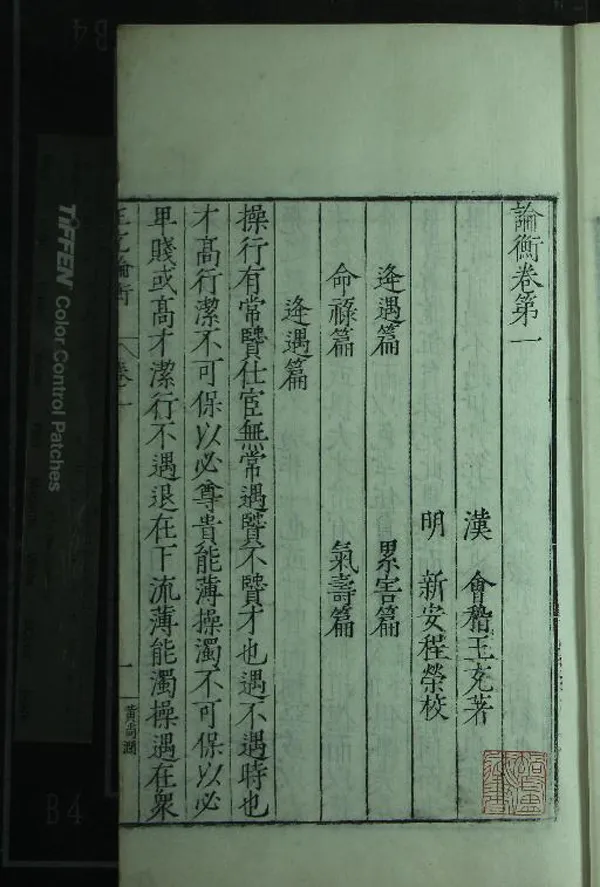 論衡卷第一
漢 會稽王充著
明 新安程榮校
逢遇篇 累害篇
命祿篇 氣壽篇
逢遇篇
操行有常賢仕宦無常遇賢不賢才也遇不遇時也
才高行潔不可保以必尊貴能薄操濁不可保以必
卑賤或高才潔行不遇退在下流薄能濁操遇在衆
王充論衡 卷一 一
TIFFEN Color Control Patches
B4
B4